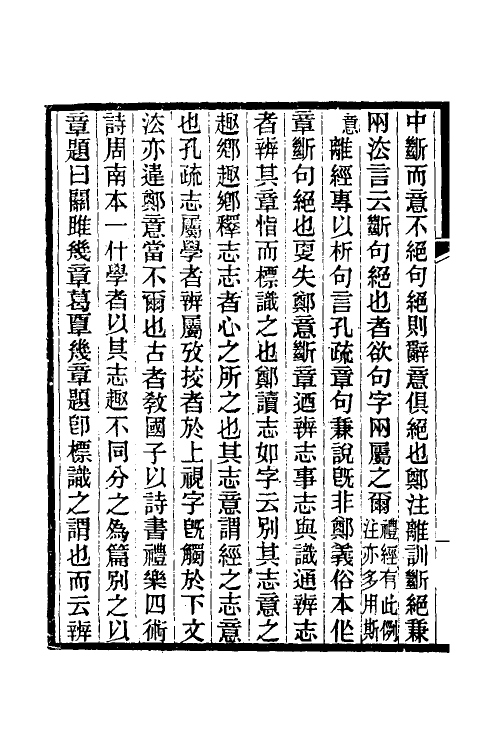 中斷而意不絕句絕則辭意俱絕也鄭注離訓斷絕兼
兩㳒言云斷句絕也者欲句字兩屬之爾禮經有此例注亦多用斯
意離經專以析句言孔疏章句兼說旣非鄭義俗本作
章斷句絕也夏失鄭意斷章迺辨志事志與識通辨志
者辨其章恉而標識之也鄭讀志如字云別其志意之
趣鄉趣鄉釋志志者心之所之也其志意謂經之志意
也孔疏志屬學者辨屬攷挍者於上視字旣觸於下文
㳒亦違鄭意當不爾也古者敎國子以詩書禮樂四術
詩周南本一什學者以其志趣不同分之為篇別之以
章題曰關雎幾章葛覃幾章題卽標識之謂也而云辨